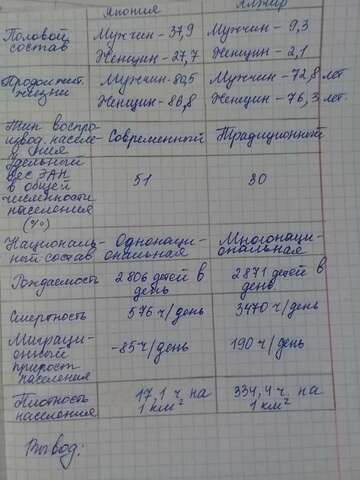 Япония Алжир
Половой Мужчин - 37,9 Мужчин - 9,3
состав Женщин - 27,7 Женщин - 2,1
Продолжит. Мужчин - 80,5 Мужчин - 72,8 лет
жизни Женщин - 86,8 Женщин - 76,3 лет.
Тип воспро-
извод. населе- Современный Традиционный
ния
Удельный
вес ЭАН 51 30
в общей
численности
населения
(%)
Националь- Однонаци- Многонаци-
ный состав ональная ональная
Рождаемость 2806 детей в 2871 детей в
день день.
Смертность 576 ч/день 3470 ч/день
Миграци- -85 ч/день 190 ч/день
онный
прирост
населения
Плотность 17,1 ч. на 334,4 ч. на
населения 1 км² 1 км²
Вывод: